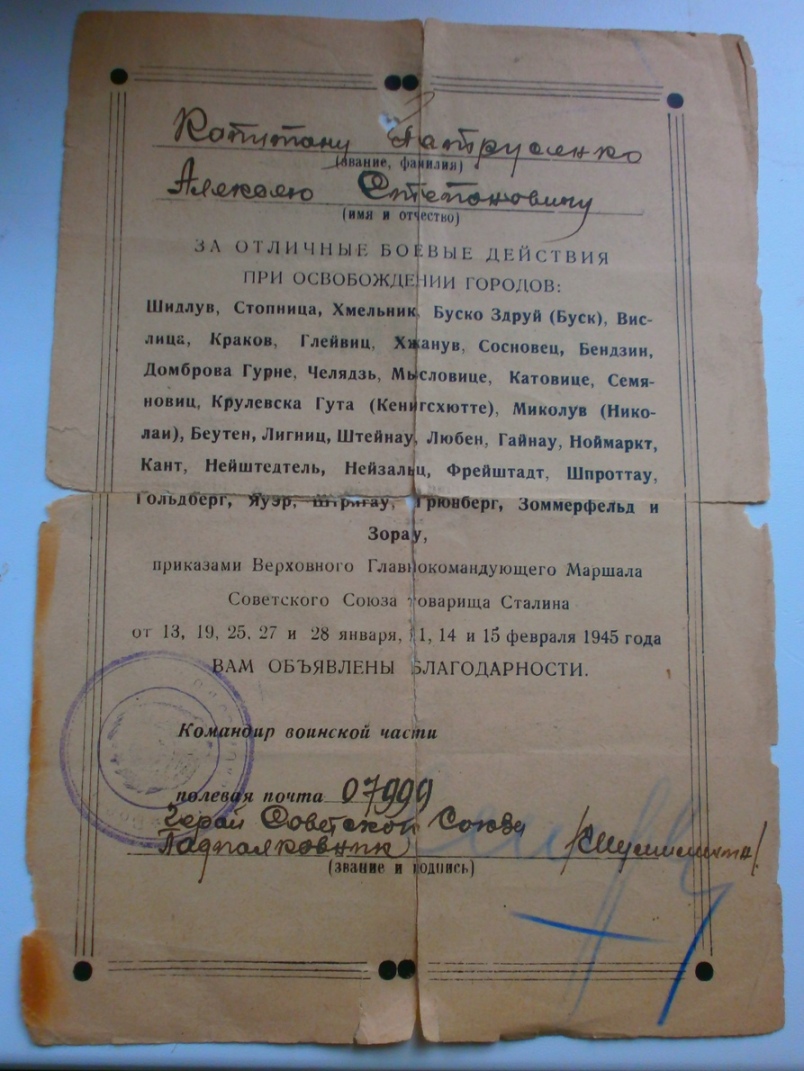 Капитану Патрусенко
(звание, фамилия)
Алексею Степановичу
(имя и отчество)
ЗА ОТЛИЧНЫЕ БОЕВЫЕ ДЕЙСТВИЯ
ПРИ ОСВОБОЖДЕНИИ ГОРОДОВ:
Шидлув, Стопница, Хмельник, Буско Здруй (Буск), Вис-
лица, Краков, Глейвиц, Хжанув, Сосновец, Бендзин,
Домброва Гурне, Челядзь, Мысловице, Катовице, Семя-
новиц, Крулевска Гута (Кенигсхютте), Миколув (Нико-
лаи), Беутен, Лигниц, Штейнау, Любен, Гайнау, Ноймаркт,
Кант, Нейштедтель, Нейзальц, Фрейштадт, Шпроттау,
Гольдберг, Яуэр, Штригау, Грюнберг, Зоммерфельд и
Зорау,
приказами Верховного Главнокомандующего Маршала
Советского Союза товарища Сталина
от 13, 19, 25, 27 и 28 января, 11, 14 и 15 февраля 1945 года
ВАМ ОБЪЯВЛЕНЫ БЛАГОДАРНОСТИ.
Командир воинской части
полевая почта 07999
Герой Советской Союза
Подполковник
(звание и подпись)